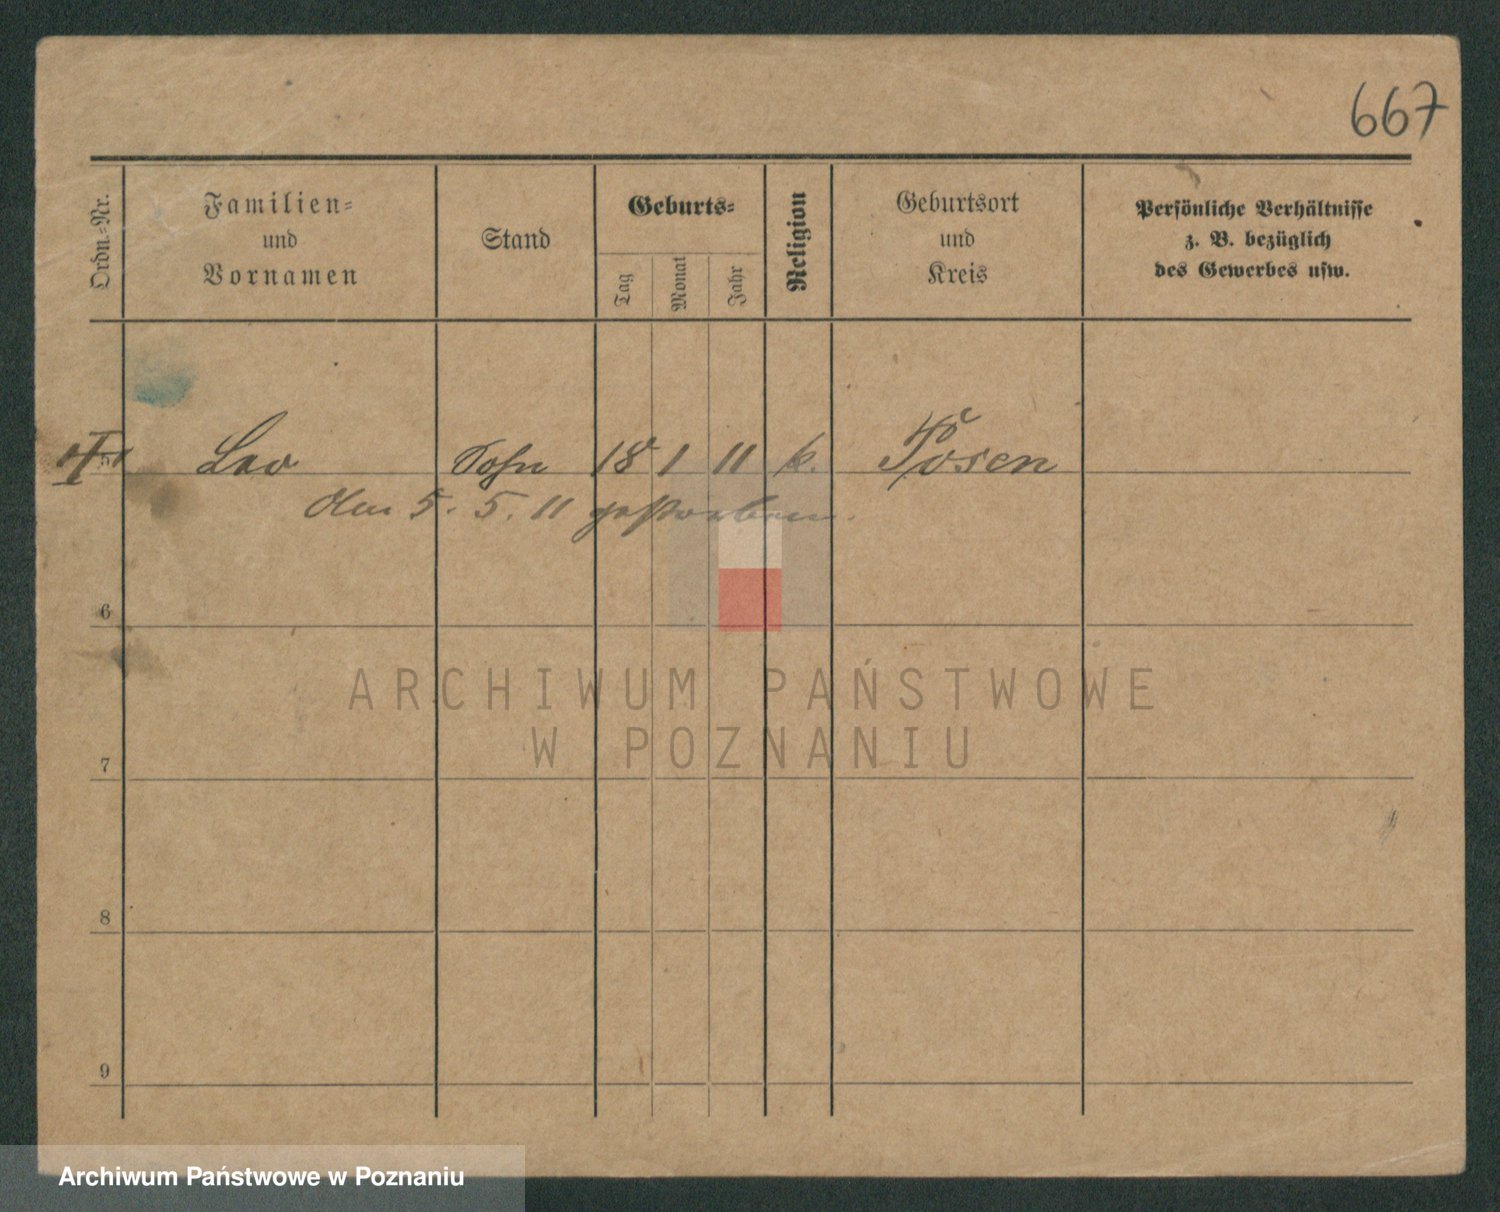 667
Ordn.-Nr.
Familien-
und
Vornamen
Stand
Geburts-
Tag
Monat
Jahr
Religion
Geburtsort
und
Kreis
Persönliche Verhältnisse
z. B. bezüglich
des Gewerbes usw.
5 Leo Sohn 18 1 11 k. Posen
den 5. 5. 11 gestorben.
6
ARCHIWUM PAŃSTWOWE
W POZNANIU
7
8
9
Archiwum Państwowe w Poznaniu